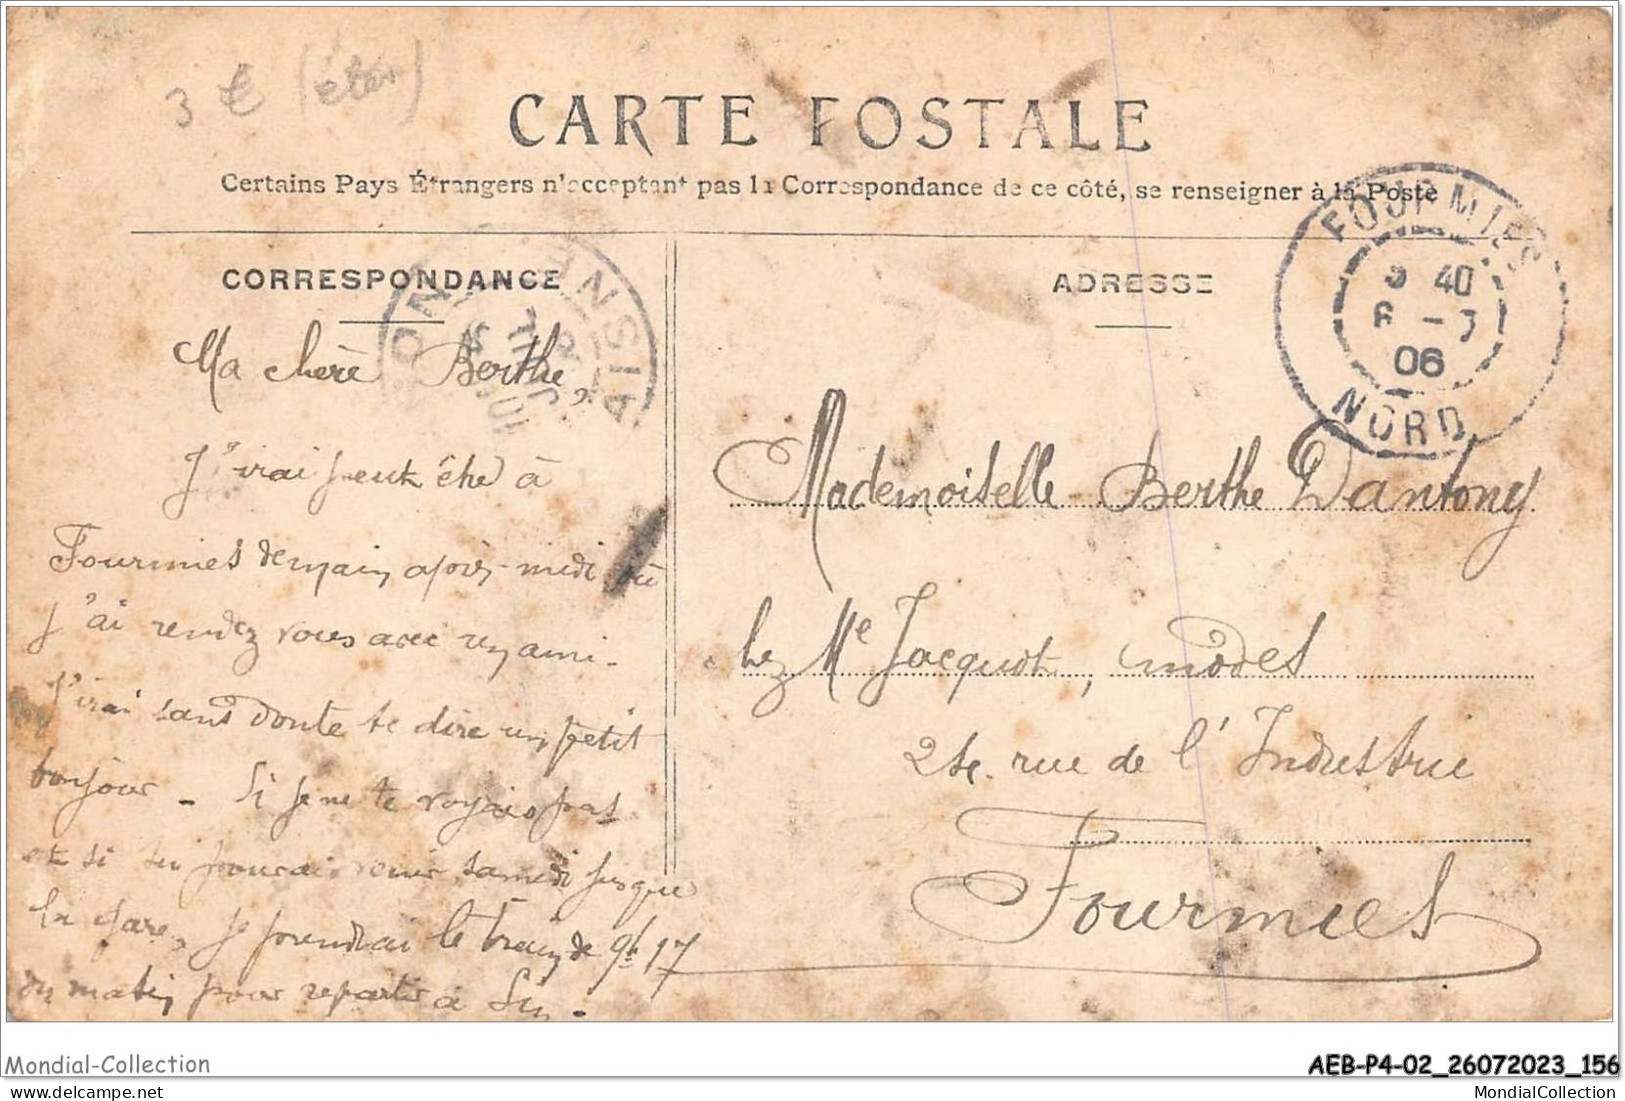 3 € (éter)
CARTE POSTALE
Certains Pays Étrangers n'acceptent pas la Correspondance de ce côté, se renseigner à la Poste
CORRESPONDANCE
ADRESSE
FOURMIES
9 40
6 -7
06
NORD
AISNE
Ma chère Berthe,
J'irai peut être à
Fourmies demain après-midi où
j'ai rendez vous avec un ami.
J'irai sans doute te dire un petit
bonjour - Si je ne te voyais pas
et si tu pouvais venir samedi jusque
la gare, je prendrai le train de 9h 17
du matin pour repartir à
Mademoiselle Berthe Dantony
chez Me Jacquot, modes
24. rue de l'Industrie
Fourmies
Mondial-Collection
AEB-P4-02_26072023_156
MondialCollection
MONDIALCOLLECTION.delcampe.net